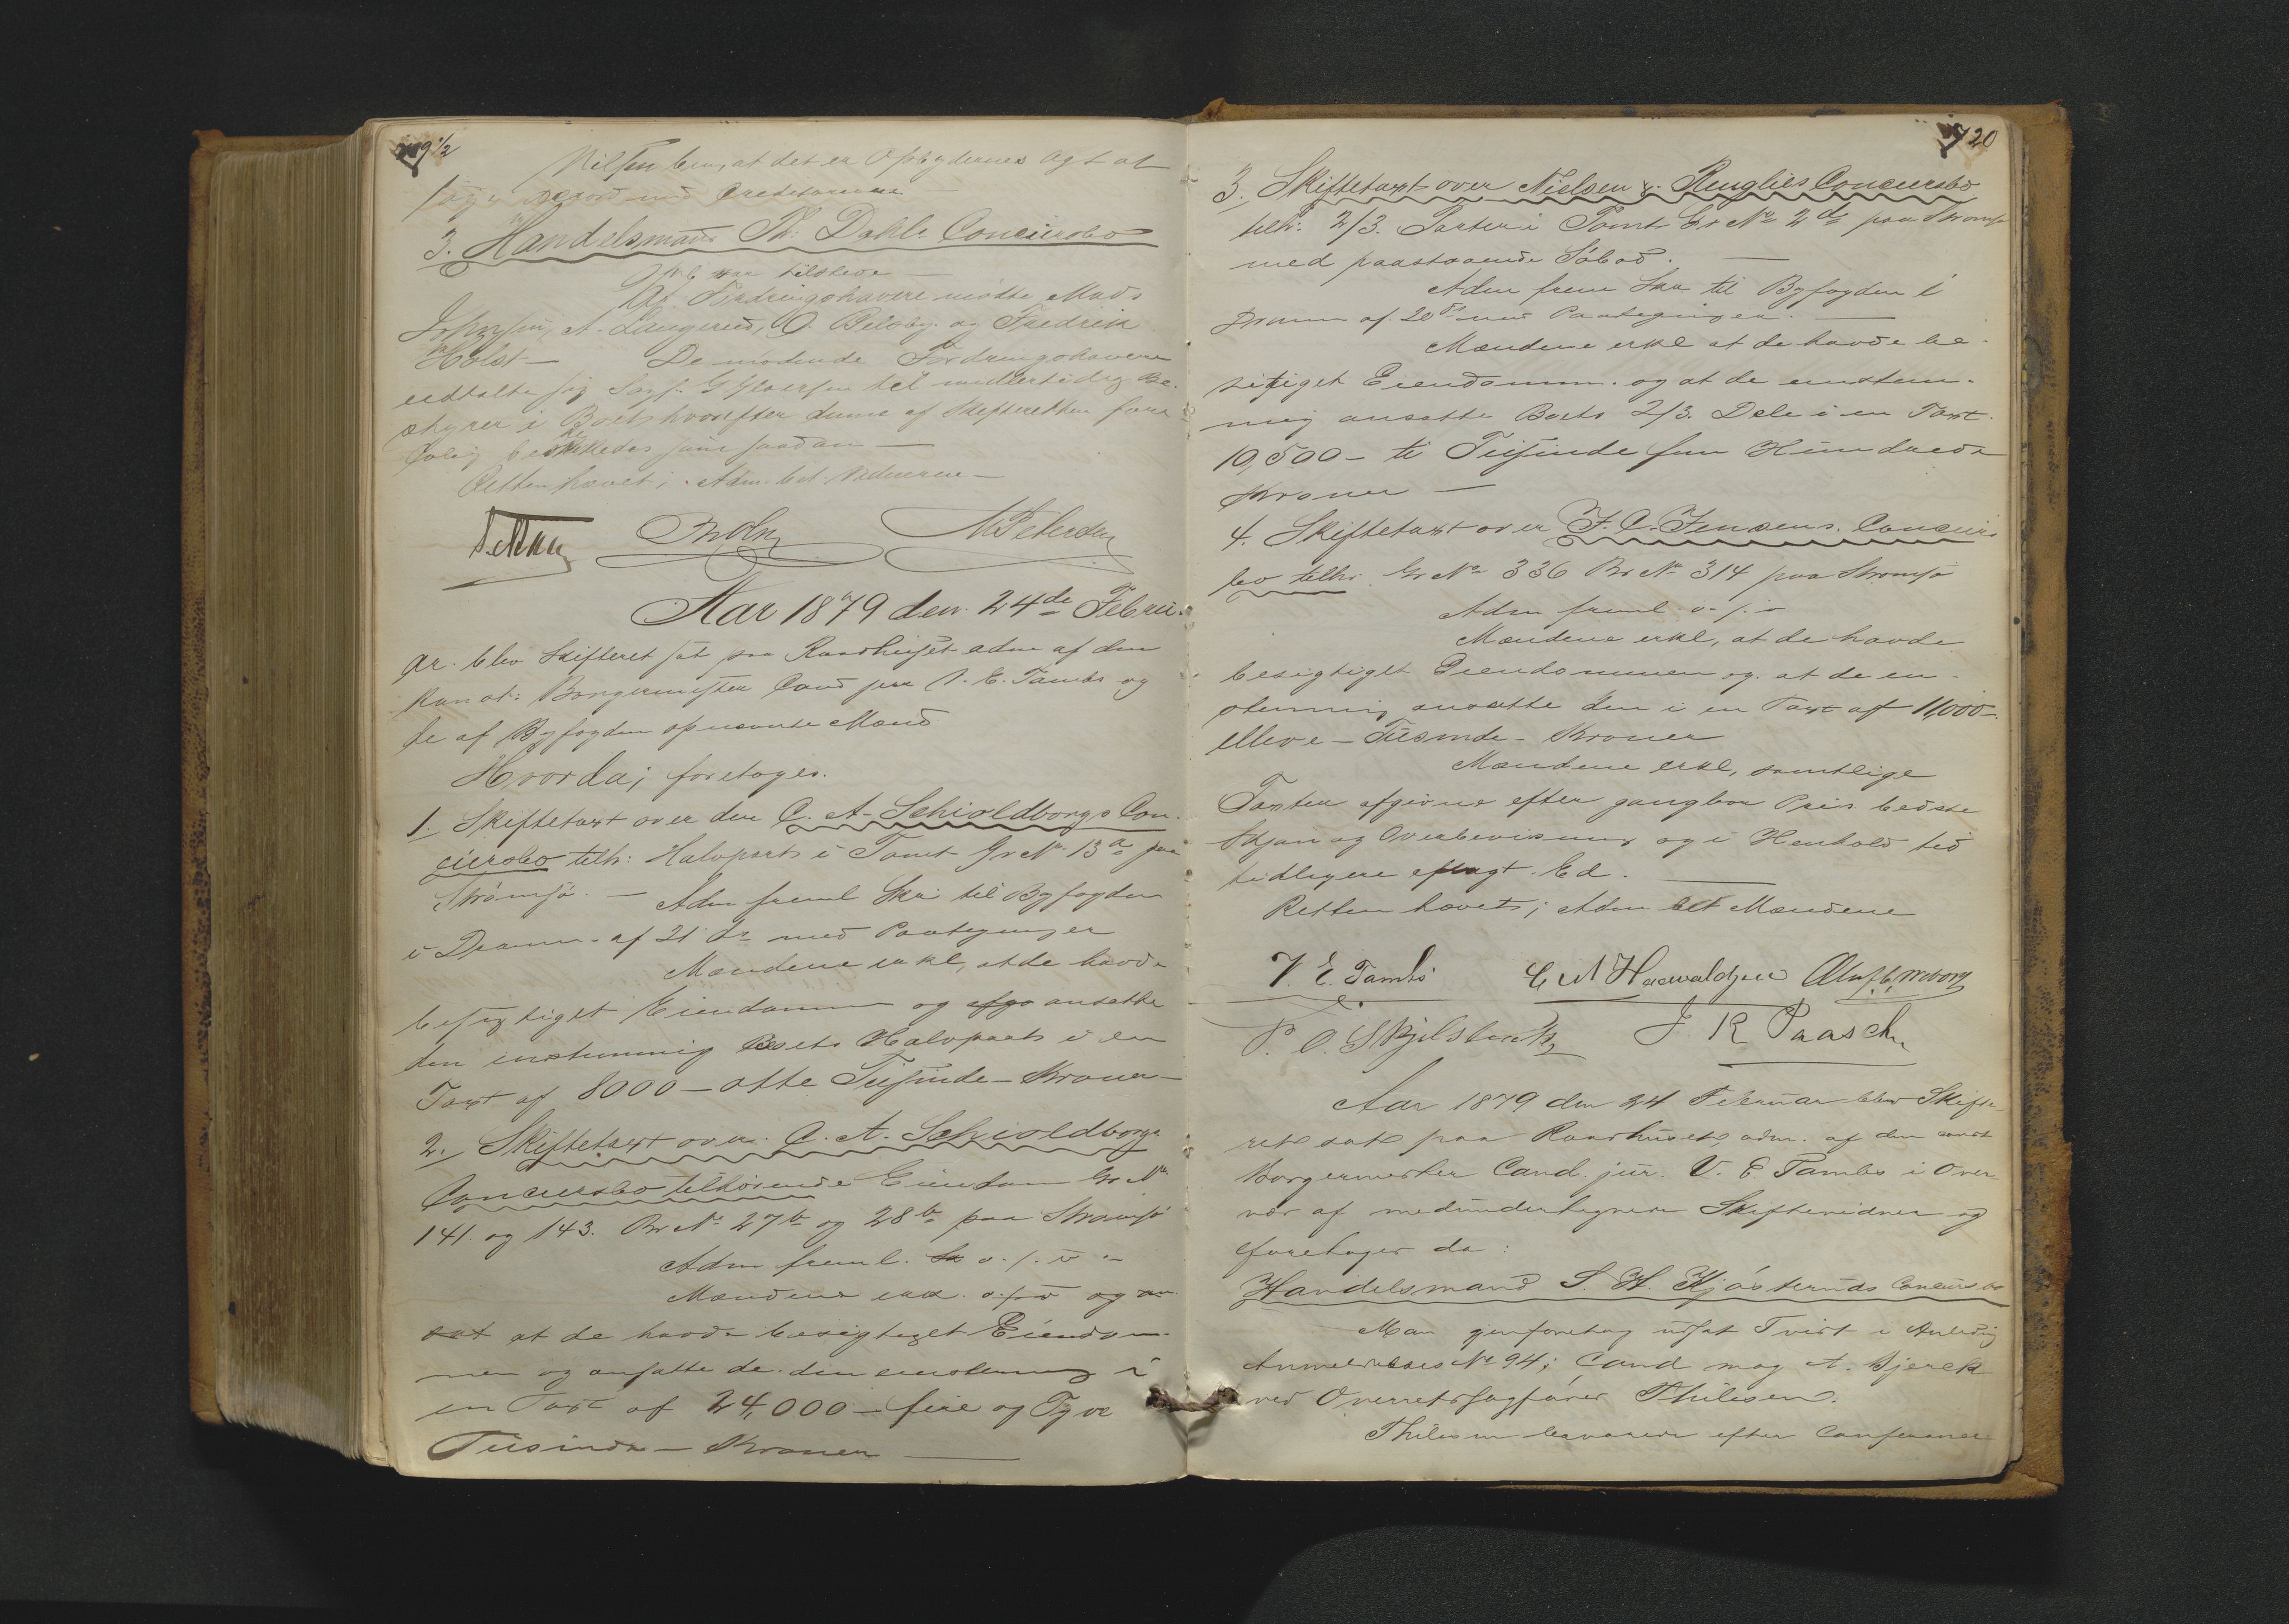 Nilsen bem, at det er Opbydernes Agt at
søge Accord med Creditorerne
3. Handelsmand Th: Dahls Concursbo
var tilstede
Af Fordringshavere mødte Mads
Johnsen, A. Langerud, O. Bilsby og Fredrik
Holst — De mødende Fordringshavere
udtalte sig til midlertidig Be-
styrer i Boet, hvorefter denne af Skifteretten fore
løbig beskikkedes som saadan —
Retten hævet; Adm. bet. Vidnerne —
M Petersen
Aar 1879 den 24de Febru-
ar blev Skifteret sat paa Raadhuset adm af den
konst: Borgermester Cand jur V. E. Tambs og
de af Byfogden opnævnte Mænd
Hvorda; foretoges.
1. Skiftetaxt over den C. A. Schioldborgs Con-
cursbo tilh: Halvpart i Tomt Gr No 13a paa
Strømsø. — Adm freml Skr til Byfogden
i Dramm. af 21 ds med Paategninger
Mændene erkl, at de havde
besigtiget Eiendommen og afgo ansatte
den enstemmig Boets Halvpart i en
Taxt af 8000 — otte Tusinde — Kroner —
2. Skiftetaxt over C. A. Schioldborgs
Concursbo tilhørende Eiendom Gr No
141 og 143. Br No 27b og 28b paa Strømsø
Adm freml. Sk o. s. v —
Mændene erkl. o. s. v og an
sat at de havde besigtiget Eiendom-
men og ansatte de den enstemmig i
en Taxt af 24,000 — fire og Tyve
Tusinde — Kroner —
720
3. Skiftetaxt over Nielsen & Ruglies Concursbo
tilh: 2/3 Parter i Tomt Gr No 2d paa Strømsø
med paastaaende Søbod. —
Adm frem Skr til Byfogden i
Dramm af 20ds med Paategninger. —
Mændene erkl at de havde be-
sigtiget Eiendomm. og at de enstem-
mig ansatte Boets 2/3 Dele i en Taxt
10,500 — ti Tusinde fem Hundrede
Kroner —
4. Skiftetaxt over F. C. Jensens Concurs
bo tilh. Gr No 336 Br No 314 paa Strømsø
Adm freml o. s. v
Mændene erkl, at de havde
besigtiget Eiendommen og at de en-
stemmig ansatte den i en Taxt af 11,000 —
elleve — Tusinde — Kroner
Mændene erkl, samtlige
Taxter afgivne efter gangbar Pris bedste
Skjøn og Overbevisning og i Henhold til
tidligere aflagt Ed. —
Retten hævet; Adm bet Mændene
V. E. Tambs C M Haavaldsen
P. O. J R Paasche
Aar 1879 den 24 Februar blev Skifte-
ret sat paa Raadhuset, adm. af den const
Borgermester Cand. jur. V. E Tambs i Over-
vær af medundertegnede Skiftevidner og
foretoges da:
Handelsmand S. H. Kjøsteruds Concursbo
Man gjenforetog udsat Tvist i Anledn
Anmeldelses No 94; Cand mag A. Bjerck
ved Overretssagfører Thilesen.
Thilesen leverede efter Conference